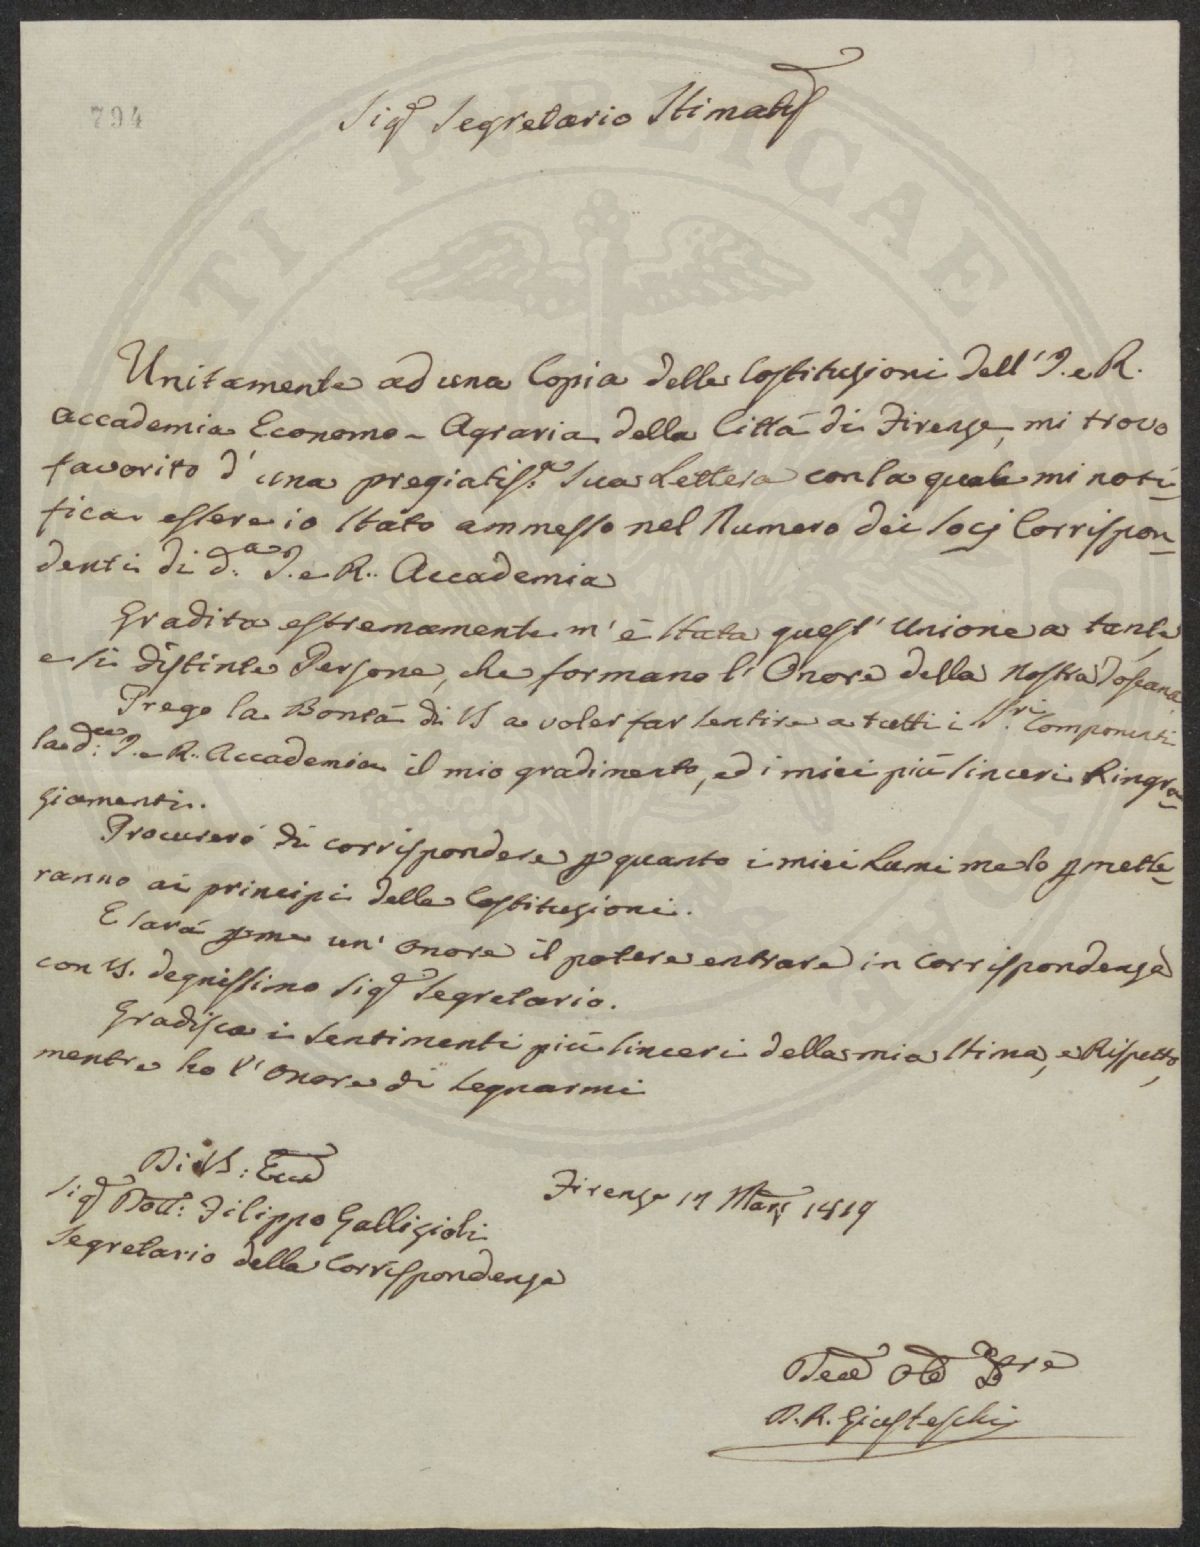 794
Sig.r Segretario Stimatis.o
Unitamente ad una Copia delle Costituzioni dell' I. e R.
Accademia Economo - Agraria della Città di Firenze, mi trovo
favorito d' una pregiatis.a Sua Lettera con la quale mi noti-
fica essere io stato ammesso nel Numero dei Socj Corrispon-
denti di d.a I. e R. Accademia
Gradita estremamente m' è stata quest' Unione a tante,
e sì distinte Persone, che formano l' Onore della nostra Toscana
Prego la Bontà di VS a voler far sentire a tutti i S.ri Componenti
la d.a I. e R. Accademia il mio gradimento, ed i miei più sinceri Ringra-
ziamenti.
Procurerò di corrispondere p quanto i miei Lumi me lo pmette-
ranno ai principj delle Costituzioni.
E sarà p me un' onore il potere entrare in corrispondenza
con VS. degnissimo Sig.r Segretario.
Gradisca i sentimenti più sinceri della mia stima, e Rispetto,
mentre ho l' Onore di segnarmi
Di VS: Ecc.
Sig.r Dott: Filippo Gallizioli
Segretario della Corrispondenza
Firenze 17 Marz 1819
Dev.o Obb.
P. R. Giusteschi
PUBLICAE